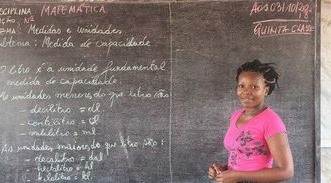 DISCIPLINA MATEMÁTICA
AOS 03/10/28
Nº
QUINTA CLASSE
Medidas e unidades
Medida de Capacidade
O litro é a unidade fundamental
medida de capacidade.
As unidades menores do que litro são
- decilitro = dl
- centilitro = cl
- mililitro = ml
As unidades maiores do que litro são:
- decalitro = dal
- hectolitro = hl